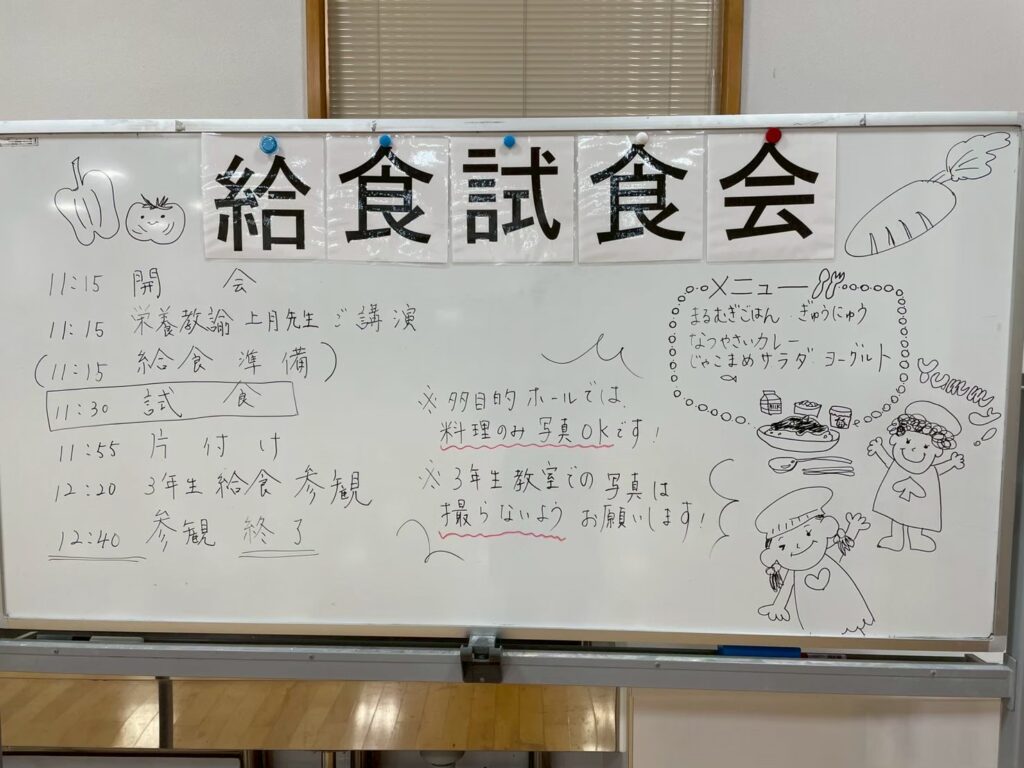 給食試食会
11:15 開会
11:15 栄養教諭 上月先生 ご講演
(11:15 給食 準備)
11:30 試食
11:55 片付け
12:20 3年生 給食 参観
12:40 参観 終了
※多目的ホールでは、
料理のみ写真OKです!
※3年生教室での写真は
撮らないようお願いします!
メニュー
まるむぎごはん ぎゅうにゅう
なつやさいカレー
じゃこまめサラダ ヨーグルト
Yummy